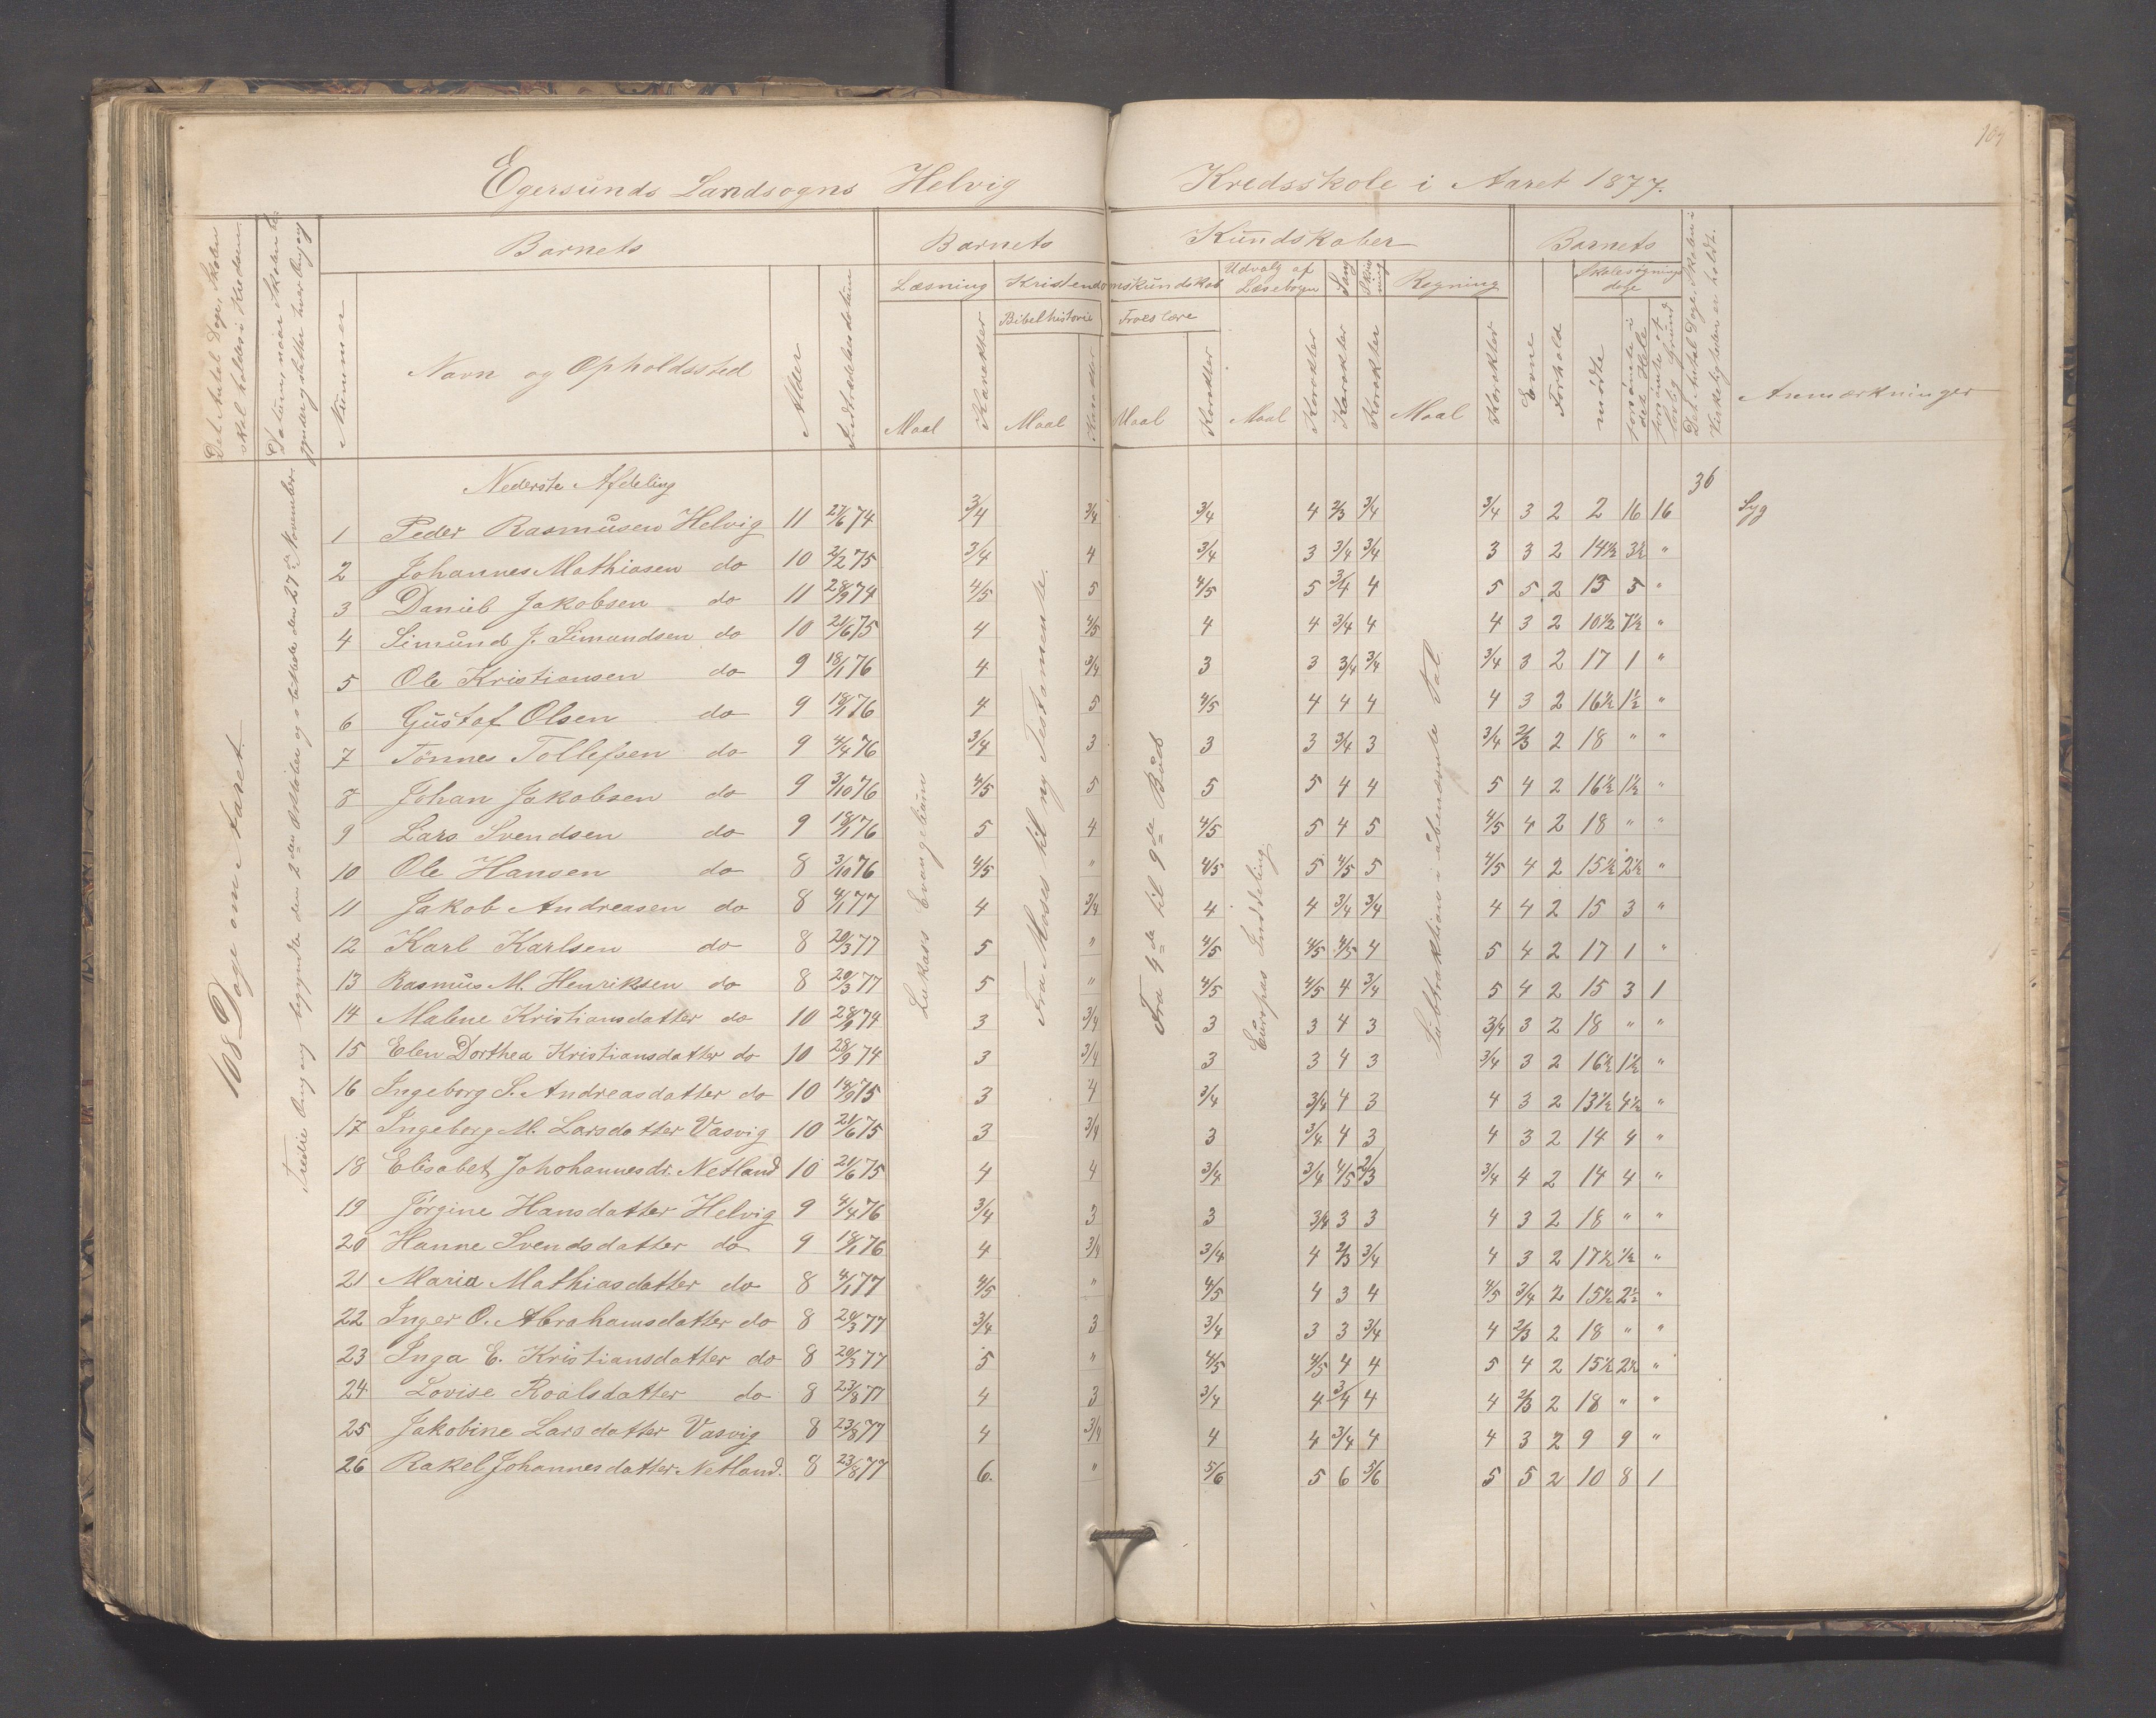 Egersunds Landsogns Helvig Kredsskole i Aaret 1877.
Det Antal Dage, Skolen skal holdes i Kredsen.
Datum, naar Skolen begynder og slutter hver Omgang
Barnets
Barnets Kundskaber
Barnets
Det Antal Dage, Skolen i Virkeligheden er holdt.
Anmærkninger
Nummer
Navn og Opholdssted
Alder
Indtrædelsesdatum
Læsning
Kristendomskundskab
Udvalg af Læsebogen
Sang
Skrivning
Regning
Evne
Forhold
Skolesøgningsdage
Bibelhistorie
Troeslære
Maal Karakter Maal Karakter Maal Karakter Maal Karakter Karakter Karakter Maal Karakter
mødte
forsømte i det Hele
forsømte af lovlig Grund
108 Dage om Aaret.
Tredie Omgang begyndte den 2den Oktober og sluttede den 27de November.
Lukass Evangelium
Fra Moses til ny Testamente.
Fra 4de til 9de Bud
Europas Inddeling
Subtraktion i ubenævnte Tal.
Nederste Afdeling
36
1 Peder Rasmusen Helvig 11 21/6 74 3/4 3/4 3/4 4 2/3 3/4 3/4 3 2 2 16 16 Syg
2 Johannes Mathiasen do 10 2/2 75 3/4 4 3/4 3 3/4 3/4 3 3 2 14½ 3½ "
3 Daniel Jakobsen do 11 28/9 74 4/5 5 4/5 5 3/4 4 5 5 2 13 5 "
4 Simund J. Simundsen do 10 21/6 75 4 4/5 4 4 3/4 4 4 3 2 10½ 7½ "
5 Ole Kristiansen do 9 18/1 76 4 3/4 3 3 3/4 3/4 3/4 3 2 17 1 "
6 Gustaf Olsen do 9 18/1 76 4 5 4/5 4 4 4 4 3 2 16½ 1½ "
7 Tønnes Tollefsen do 9 4/4 76 3/4 3 3 3 3/4 3 3/4 2/3 2 18 " "
8 Johan Jakobsen do 9 3/10 76 4/5 5 5 5 4 4 5 4 2 16½ 1½ "
9 Lars Svendsen do 9 18/1 76 5 4 4/5 5 4 5 4/5 4 2 18 " "
10 Ole Hansen do 8 3/10 76 4/5 " 4/5 5 4/5 5 4/5 4 2 15½ 2½ "
11 Jakob Andreasen do 8 4/1 77 4 3/4 4 4 3/4 3/4 4 4 2 15 3 "
12 Karl Karlsen do 8 20/3 77 5 " 4/5 4/5 4/5 4 5 4 2 17 1 "
13 Rasmus M. Henriksen do 8 20/3 77 5 " 4/5 4/5 4 3/4 5 4 2 15 3 1
14 Malene Kristiansdatter do 10 28/9 74 3 3/4 3 3 4 3 3/4 3 2 18 " "
15 Elen Dorthea Kristiansdatter do 10 28/9 74 3 3/4 3 3 4 3 3/4 3 2 16½ 1½ "
16 Ingeborg S. Andreasdatter do 10 14/9 75 3 4 3/4 3/4 4 3 4 3 2 13½ 4½ "
17 Ingeborg M. Larsdatter Vasvig 10 21/6 75 3 3/4 3 3/4 4 3 4 3 2 14 4 "
18 Elisabet Johohannesdr. Netland 10 21/6 75 4 4 3/4 3/4 4/5 2/3 3/4 4 2 14 4 "
19 Jørgine Hansdatter Helvig 9 4/4 76 3/4 3 3 3/4 3 3 4 3 2 18 " "
20 Hanne Svendsdatter do 9 18/1 76 4 3/4 3/4 4 2/3 3/4 4 3 2 17½ ½ "
21 Maria Mathiasdatter do 8 4/1 77 4/5 " 4/5 4 3 4 4/5 3/4 2 15½ 2½ "
22 Inger O. Abrahamsdatter do 8 20/3 77 3/4 3 3/4 3 3 3/4 4 2/3 2 18 " "
23 Inga E. Kristiansdatter do 8 20/3 77 5 " 4/5 4/5 4 4 5 4 2 15½ 2½ "
24 Lovise Roalsdatter do 8 23/8 77 4 3 3/4 4 3/4 4 4 2/3 2 18 " "
25 Jakobine Larsdatter Vasvig 8 23/8 77 4 3/4 4 4 3/4 4 4 3 2 9 9 "
26 Rakel Johannesdatter Netland. 8 23/8 77 6. " 5/6 5 6 5/6 5 5 2 10 8 1